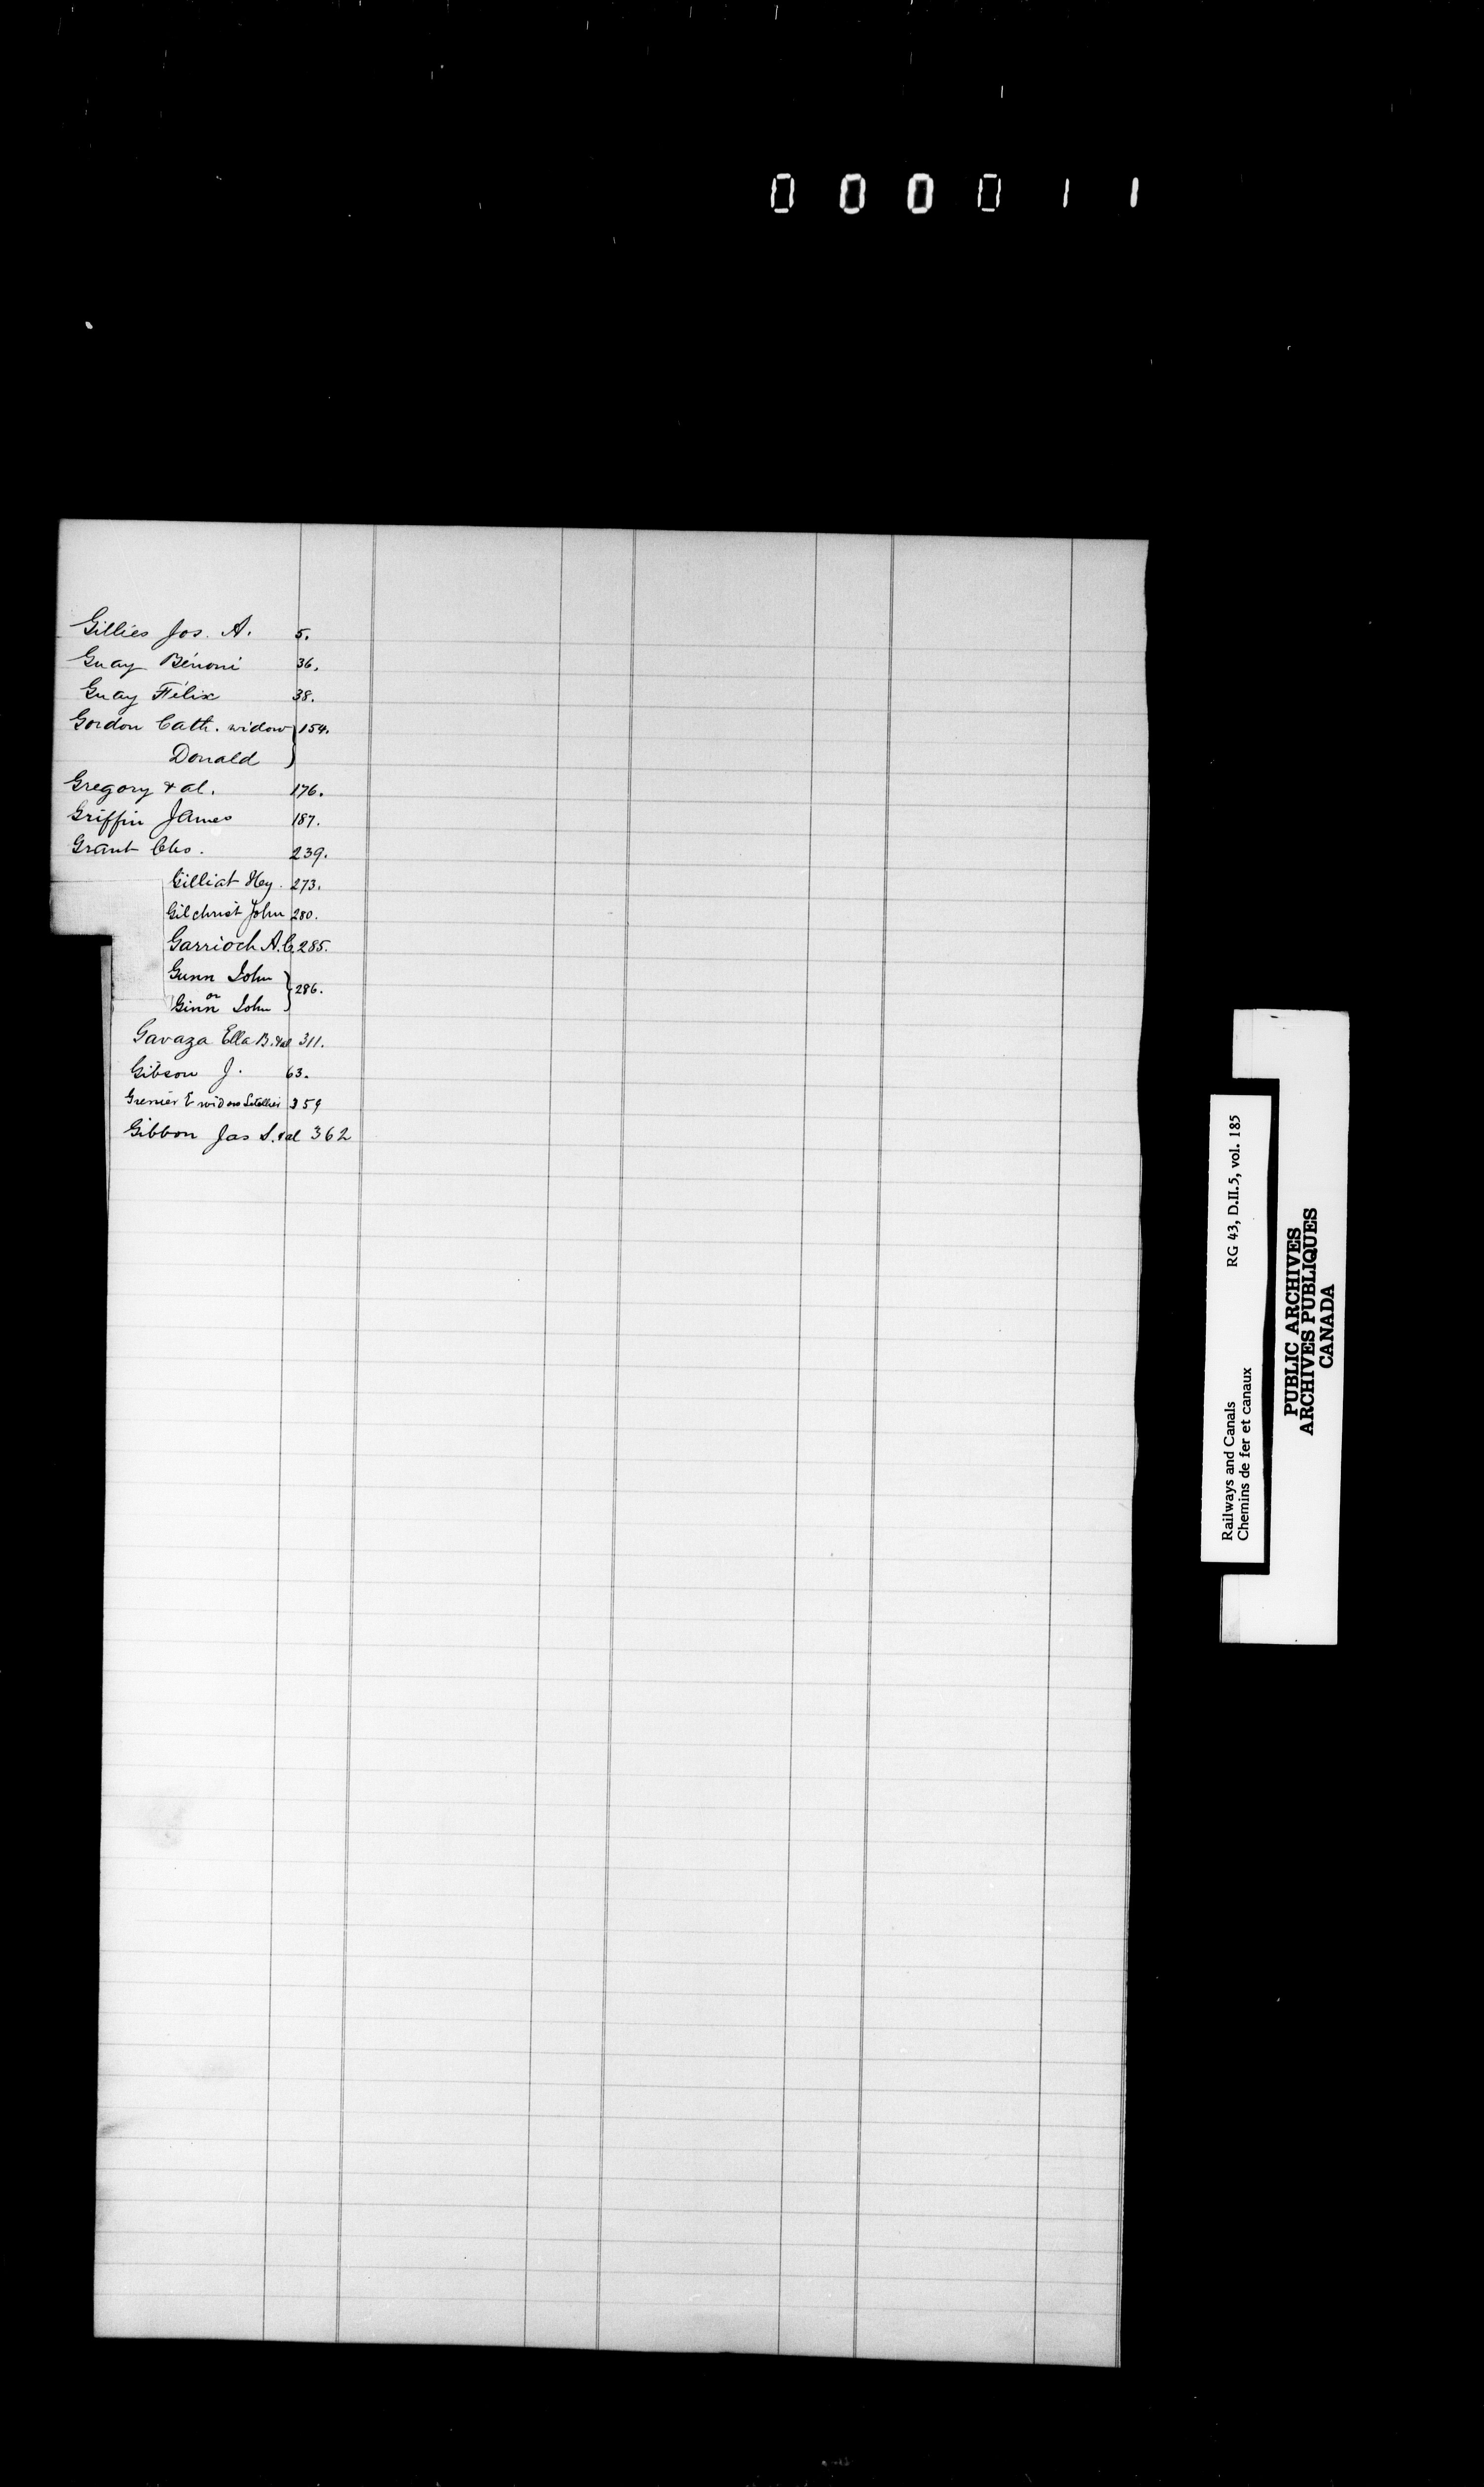 000011
Gillies Jos. A. 5.
Guay Bénoni 36.
Guay Félix 38.
Gordon Cath. widow } 154.
Donald
Gregory & al. 176.
Griffin James 187.
Grant Chs. 239.
Gilliat Hy. 273.
Gilchrist John 280.
Garrioch A. C. 285.
Gunn John } 286.
or
Ginn John
Gavaza Ella B. & al 311.
Gibson J. 63.
Grenier E widow Letellier 359
Gibbon Jas S. & al 362
Railways and Canals RG 43, D.II.5, vol. 185
Chemins de fer et canaux
PUBLIC ARCHIVES
ARCHIVES PUBLIQUES
CANADA